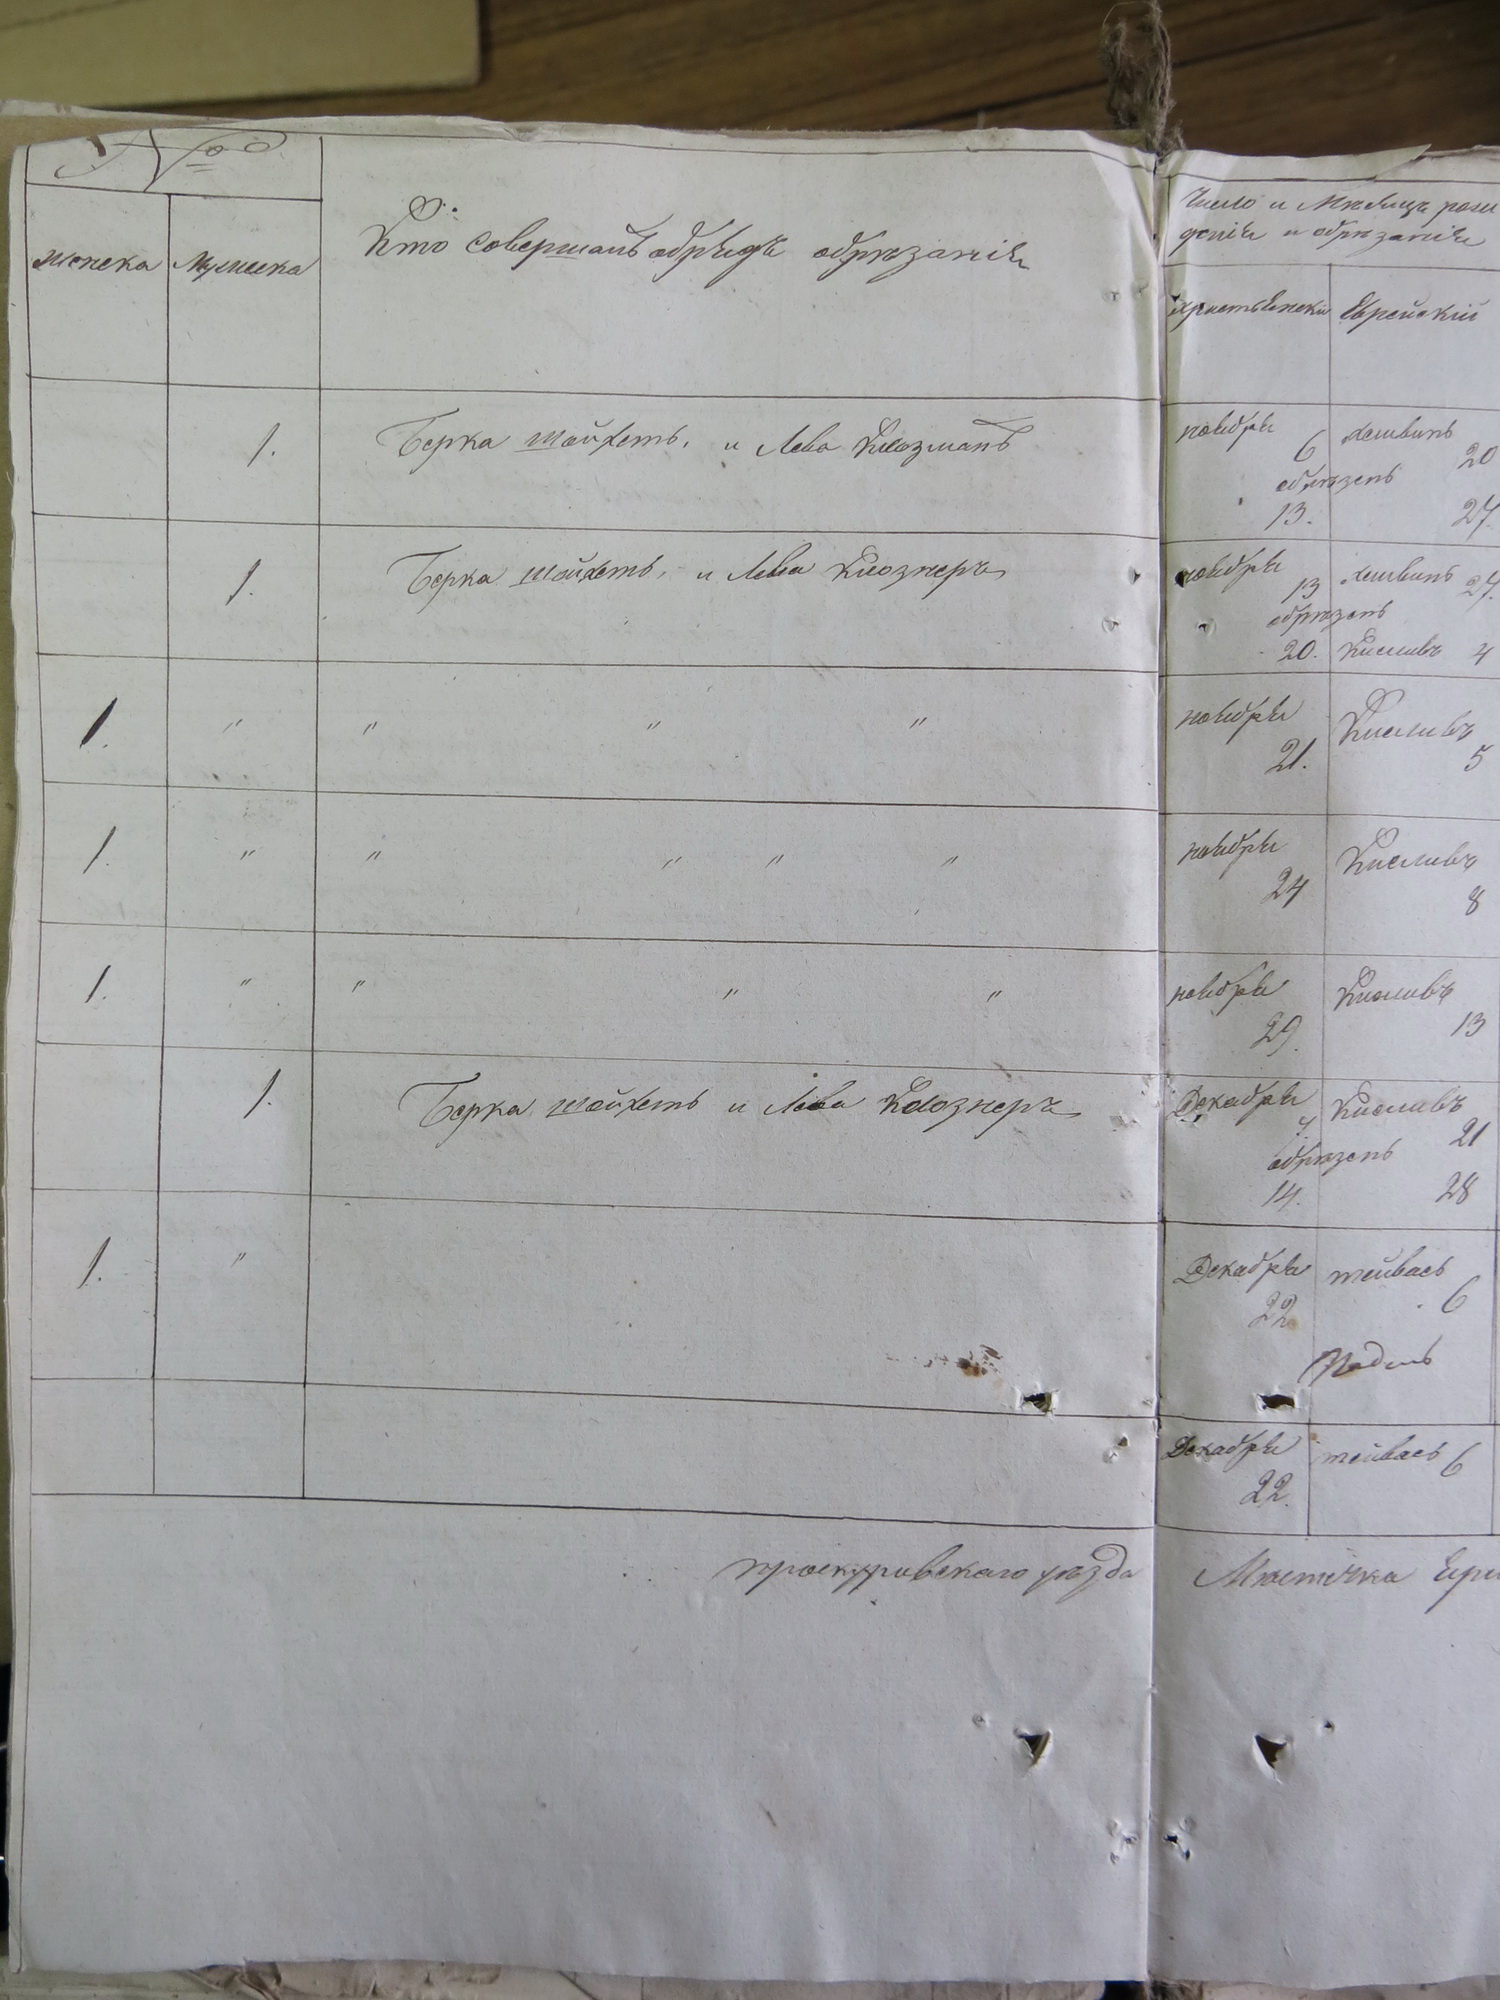 №
женска
Мужеска
Кто совершалъ обрядъ обрѣзанія
Число и Мѣсяцъ рож
денія и обрѣзанія
христьянскій
Еврейскій
1. Берка шойхетъ, и Лева Клюзманъ
ноября 6 хешвинъ 20
обрѣзанъ
13. 27.
1. Берка шойхетъ, и Лева Клюзнеръ
ноября 13 хешвинъ 27.
обрѣзанъ
20. Кисливъ 4
1. " " " "
ноября 21. Кисливъ 5
1. " " " " "
ноября 24 Кисливъ 8
1. " " " "
ноября 29. Кисливъ 13
1. Берка шойхетъ и Лева Клюзнеръ
Декабря 7. Кисливъ 21
обрѣзанъ
14. 28
1. "
Декабря 22 тейвасъ 6
Декабря 22. тейвасъ 6
проскуровскаго уѣзда Мѣстечка